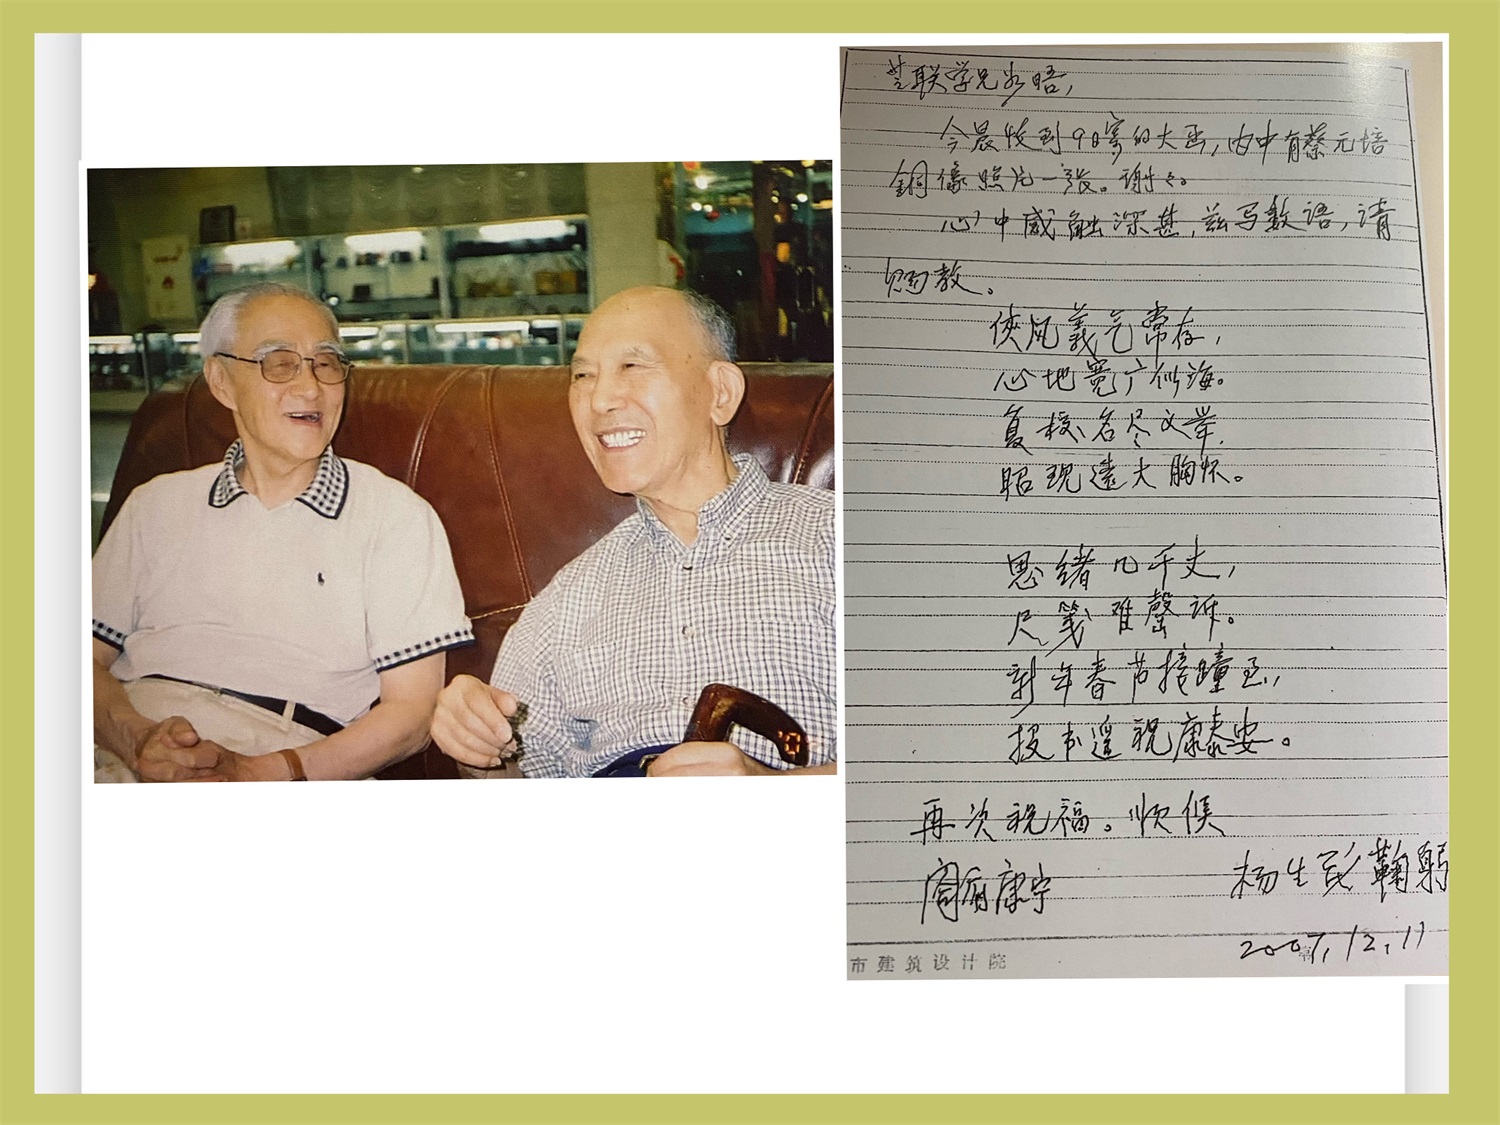 芝联学兄如晤，
今晨收到9日寄的大函，内中有蔡元培
銅像照片一张。谢々。
心中感触深甚，兹写数语，请
赐教。
侠风義气常存，
心地宽广似海。
复校名尽义举，
昭现遠大胸怀。
思绪几千丈，
尺箋难罄诉。
新年春节接踵至，
投书遥祝康泰安。
再次祝福。顺候
阖府康宁
杨生彭鞠躬
2007.12.11
市建筑设计院